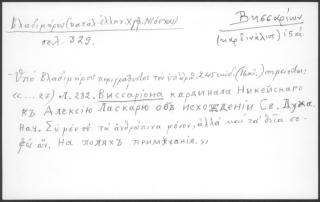 Βλαδιμήρου (κατάλ. ἑλλην. χφ. Μόσχου)
σελ. 329.
Βησσαρίων
(καρδινάλιος) 15 αἰ.
Ὑπὸ Βλαδιμήρου περιγράφοντος τὸν ὑπ' ἀριθ. 245 κώδ. σημειοῦται:
«.....27) Л. 282. Виссаріона кардинала Никейскаго
къ Алексію Ласкарю объ исхожденіи Св. Духа.
Нач. Σὺ μὲν οὐ τὰ ἀνθρώπινα μόνον, ἀλλὰ καὶ τὰ θεῖα σο-
φὸς ὤν. На поляхъ примѣчанія.»